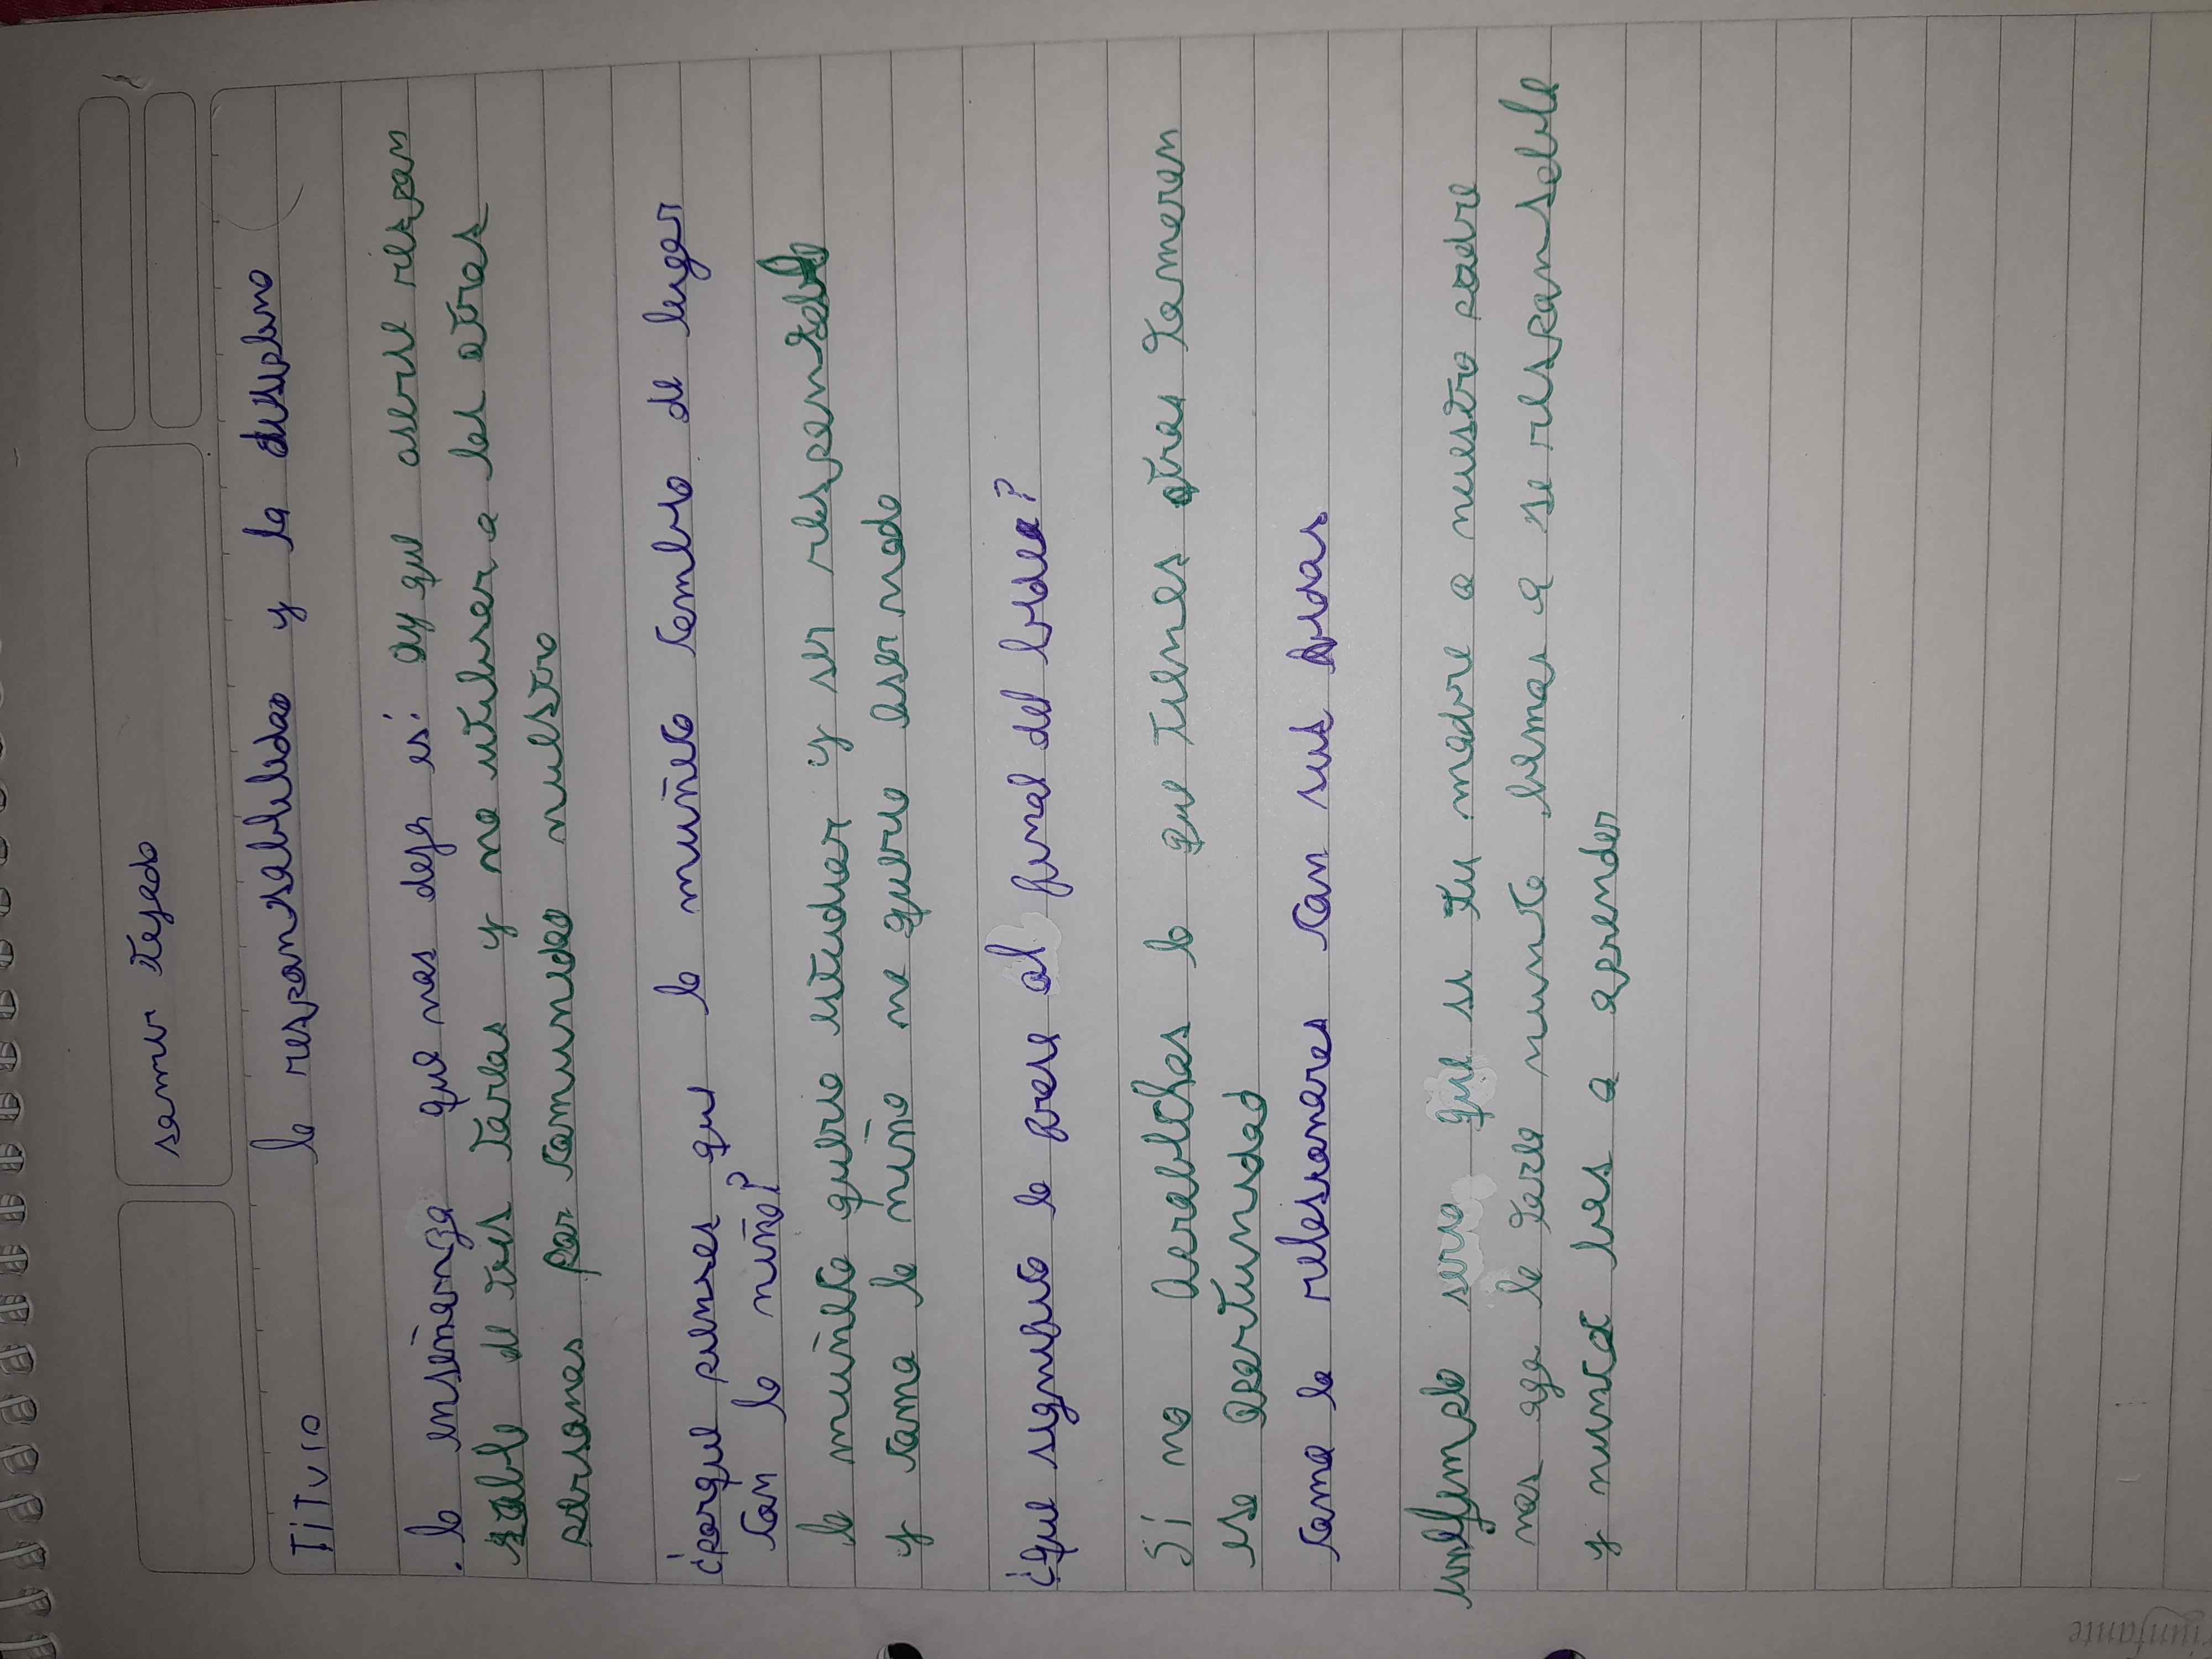 samir tejado
Titulo la responsabilidad y la disiplina
. la enseñanza que nos deja es: ay que aserse respon
sable de tus tareas y no utilisar a las otras
personas por comunidad nuestro
¿porque piensas que la muñeca cambio de lugar
con la niña?
la muñeca quiere estudiar y ser responsable
y como la niña no quiere aser nada
¿que significa la frase al final del video?
Si no aprobechas lo que tienes otras tomaran
esa oportunidad
como lo relesionares con sus vidas
un ejemplo seria que si tu madre o nuestro padre
nos aga la tarea nunca bamos a se responsable
y nunca bas a aprender
riunfante